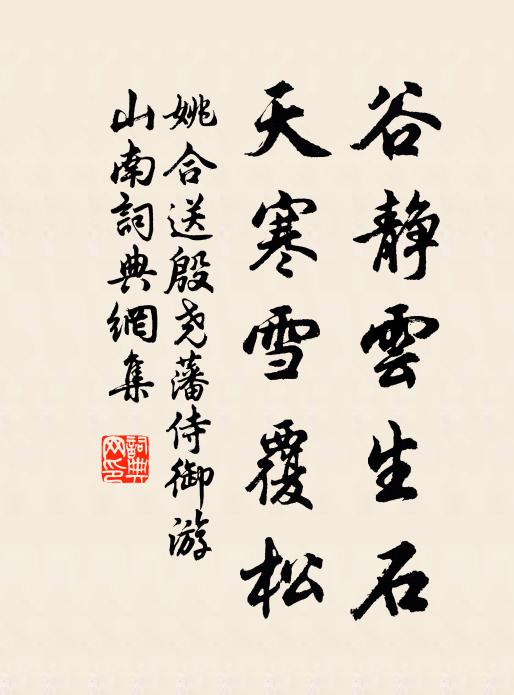 谷静雲生石
天寒雪覆松
姚合送殷尧藩侍御游
山南詞典網集
詞典网印